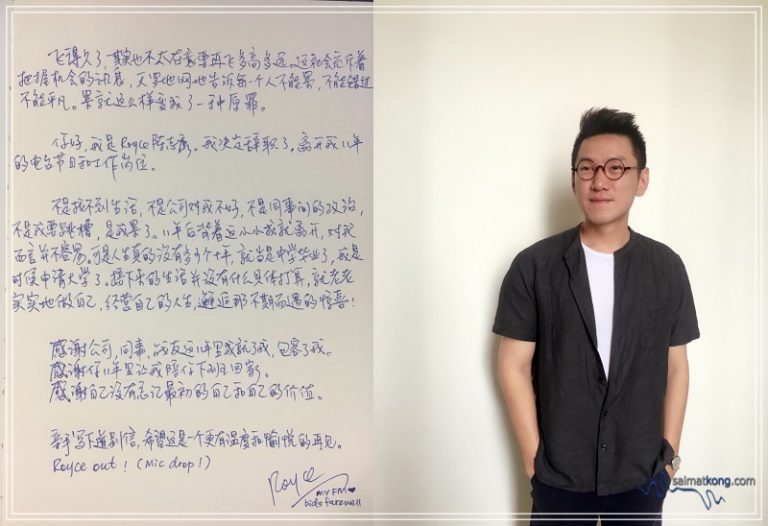 飞得久了，其实也不太在意要再飞多高多远。这社会充斥着
把握机会的讯息，天罗地网地告诉每一个人不能累，不能错过
不能平凡。累就这么样变成了一种原罪。
你好，我是Royce陈志康。我决定辞职了，离开我11年
的电台节目和工作岗位。
不是找不到生活，不是公司对我不好，不是同事间的政治，
不是我要跳槽，是我累了。11年后背着这小小成就离开，对我
而言并不容易。可是人生真的没有多少个十年，就当是中学毕业了，我是
时候申请大学了。接下来的生活并没有什么具体打算，就老老
实实地做自己，经营自己的人生，邂逅那不期而遇的惊喜！
感谢公司，同事，战友这11年里成就了我，包容了我。
感谢你11年里让我陪你下班回家。
感谢自己没有忘记最初的自己和自己的价值。
亲手写下道别信，希望这是一个更有温度和愉悦的再见。
Royce out! (Mic drop!)
Royce
MY FM
bids farewell
saimatkong.com